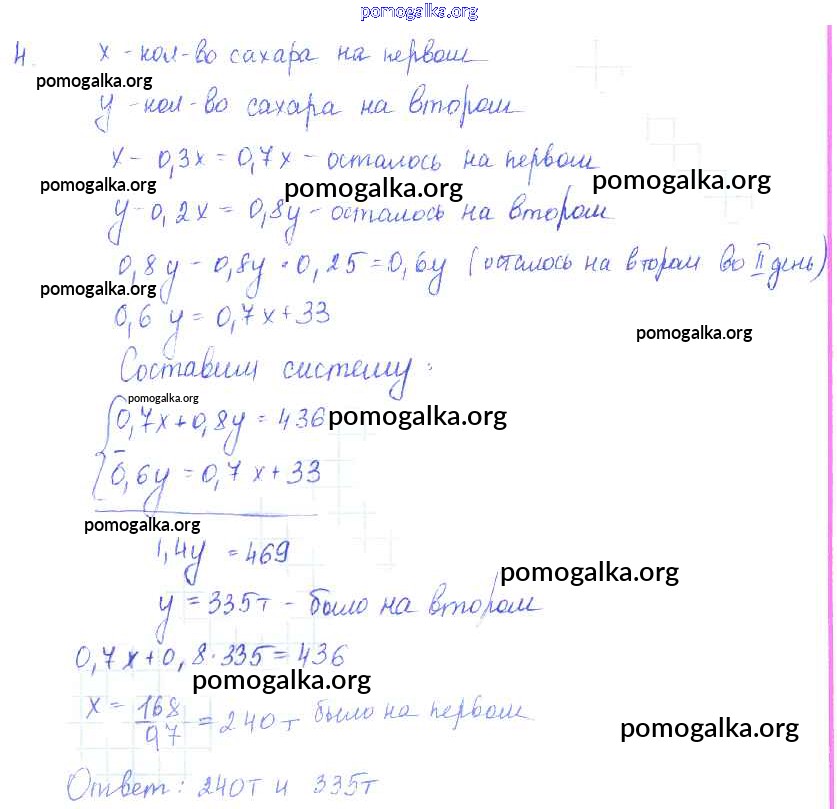 pomogalka.org
4. х - кол-во сахара на первом
pomogalka.org
у - кол-во сахара на втором
х - 0,3х = 0,7х - осталось на первом
pomogalka.org pomogalka.org pomogalka.org
у - 0,2х = 0,8у - осталось на втором
0,8у - 0,8у · 0,25 = 0,6у (осталось на втором во II день)
pomogalka.org
0,6 у = 0,7х + 33
pomogalka.org
Составим систему:
pomogalka.org
0,7х + 0,8у = 436 pomogalka.org
0,6у = 0,7х + 33
pomogalka.org
1,4у = 469
pomogalka.org
у = 335т - было на втором
0,7х + 0,8 · 335 = 436
pomogalka.org
х = 168/97 = 240т было на первом
pomogalka.org
Ответ: 240т и 335т